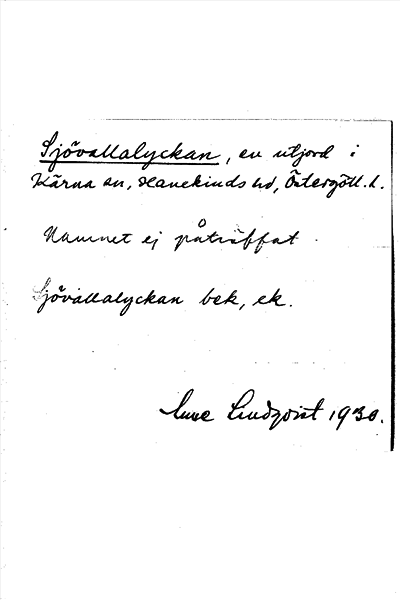 Sjövallalyckan, en utjord i
Kärna sn, Hanekinds hd, Östergötl. l.
Namnet ej påträffat.
Sjövallalyckan bek, ek.
Sune Lindqvist 1930.